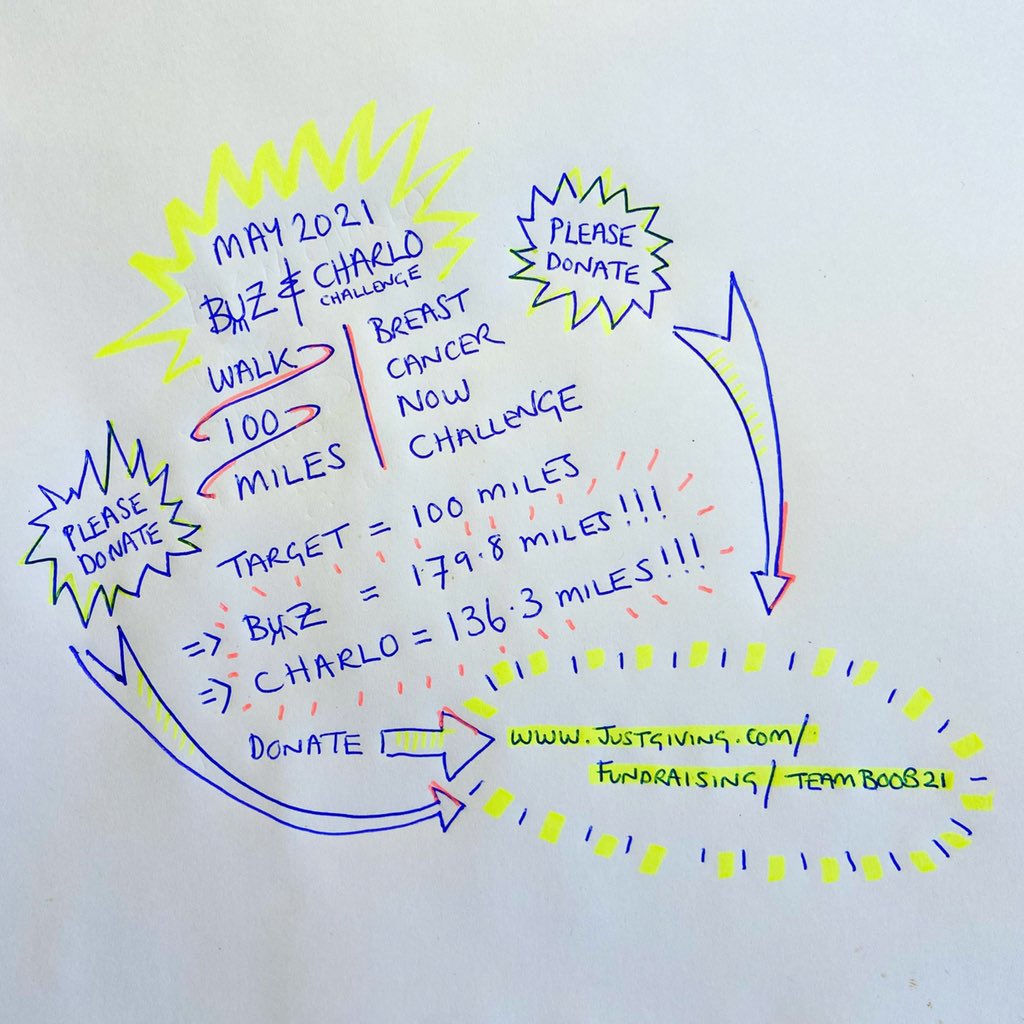 MAY 2021
BUZZ & CHARLO
CHALLENGE
WALK
100
MILES
BREAST
CANCER
NOW
CHALLENGE
PLEASE
DONATE
PLEASE
DONATE
TARGET = 100 MILES
=> BUZZ = 179.8 MILES!!!
=> CHARLO = 136.3 MILES!!!
DONATE
WWW.JUSTGIVING.COM/
FUNDRAISING/TEAMBOOB21